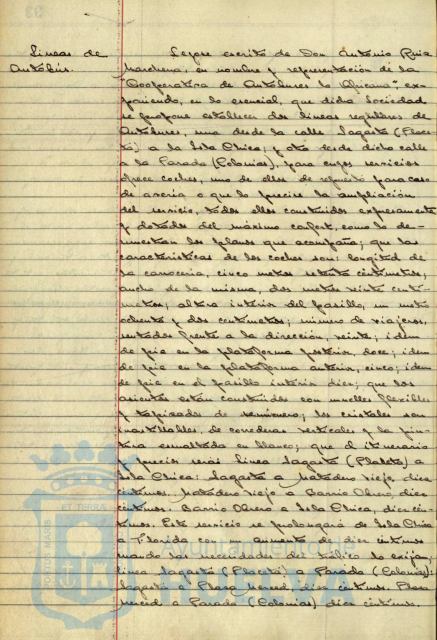 Lineas de
Autobús.
Leyose escrito de Don Antonio Ruiz
Marchena, en nombre y representación de la
"Cooperativa de Autobuses la Africana" ex-
poniendo, en lo esencial, que dicha Sociedad
se propone establecer dos lineas regulares de
Autobuses, una desde la calle Sagasta (Place-
ta) a la Isla Chica; y otra desde dicha calle
a la Parada (Colonias), para cuyos servicios
ofrece coches, uno de ellos de repuesto para caso
de averia o que lo precise la ampliación
del servicio, todos ellos construidos expresamente
y dotados del máximo confort, como lo de-
muestran los planos que acompaña; que las
características de los coches son: longitud de
la carroceria, cinco metros setenta centimetros;
ancho de la misma, dos metros veinte centi-
metros; altura interior del pasillo, un metro
ochenta y dos centimetros; número de viajeros,
sentados frente a la dirección, veinte; idem
de pie en la plataforma posterior, doce; idem
de pie en la plataforma anterior, cinco; idem
de pie en el pasillo interior diez; que los
asientos están construidos con muelles flexibles
y tapizados de semicuero; los cristales son
inastillables, de correderas verticales y la pin-
tura esmaltada en blanco; que el itinerario
y precios será: linea Sagasta (Placeta) a
Isla Chica: Sagasta a Matadero Viejo, diez
céntimos. Matadero Viejo a Barrio Obrero, diez
céntimos. Barrio Obrero a Isla Chica, diez cénti-
mos. Este servicio se prolongará de Isla Chica
a Florida con un aumento de diez céntimos
cuando las necesidades del tráfico lo exijan;
linea Sagasta (Placeta) a Parada (Colonias):
Sagasta a Plaza Merced, diez céntimos. Plaza
Merced a Parada (Colonias) diez céntimos.
PORTUS MARIS
ET TERRAE
Ayuntamiento de
HUELVA